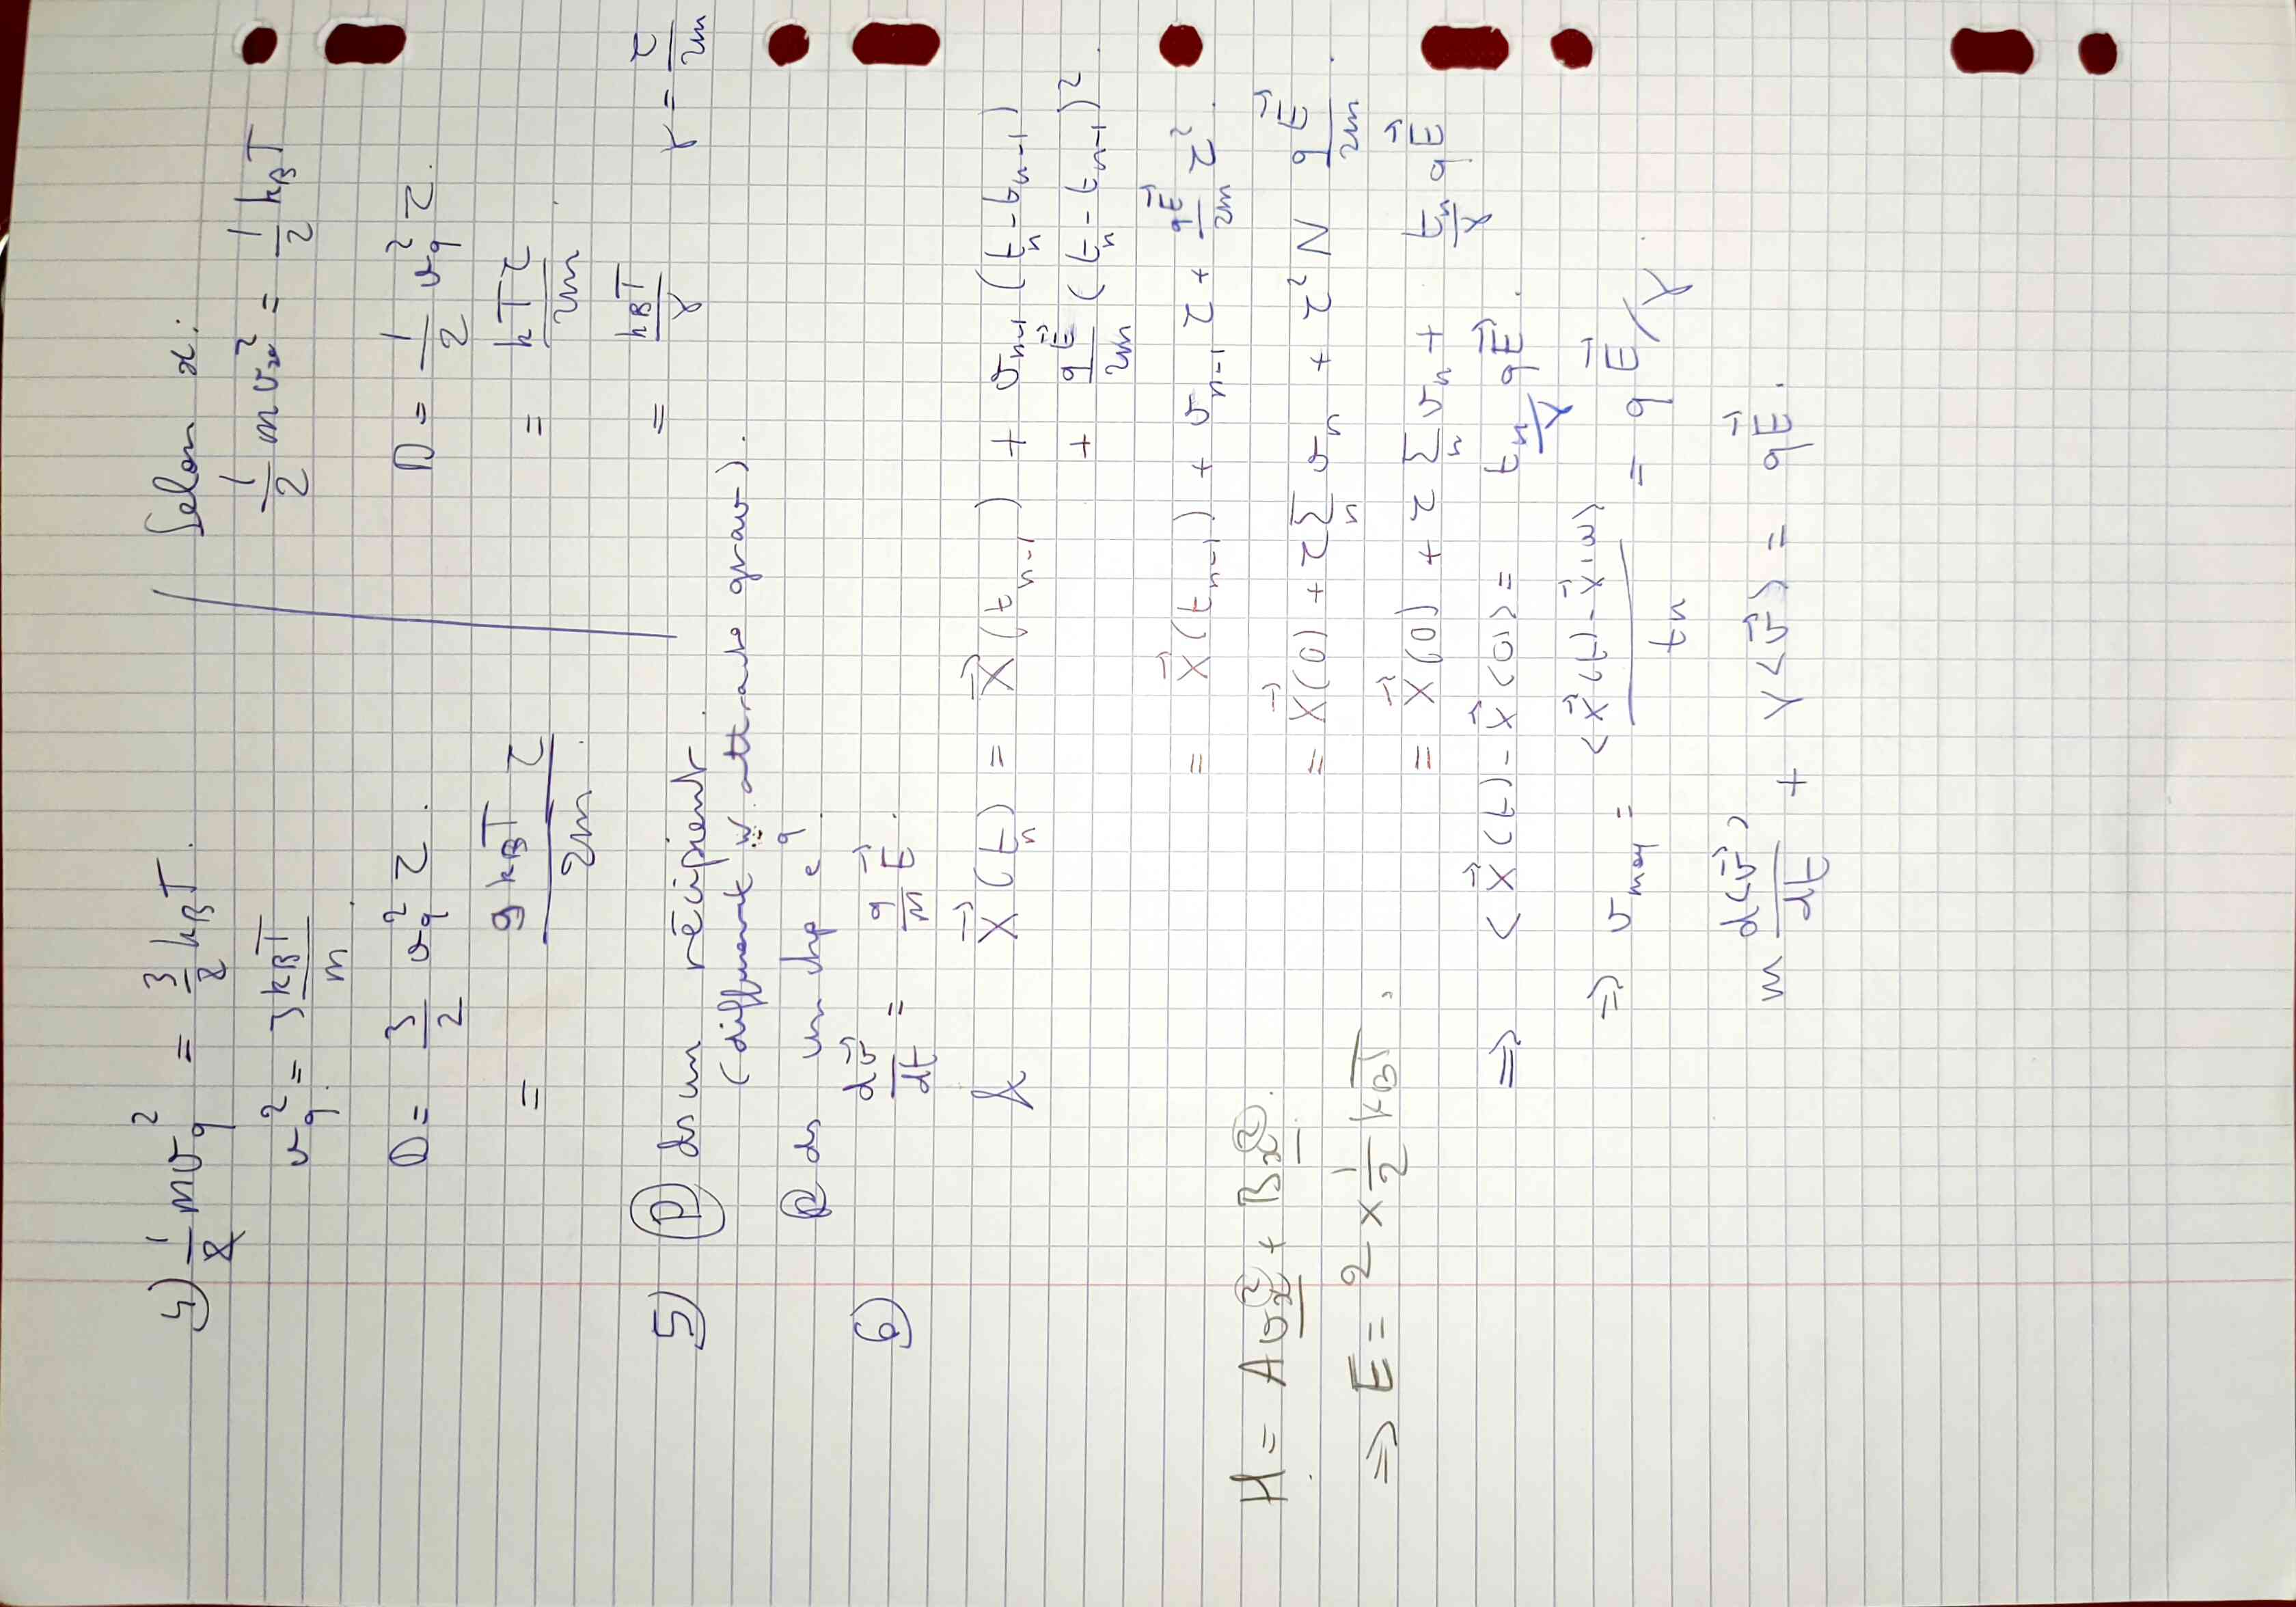 4) 1/2 m v_q² = 3/2 k_B T.
v_q² = 3 k_B T / m.
D = 3/2 v_q² τ.
= 9 k_B T τ / 2m.
Selon x:
1/2 m v_x² = 1/2 k_B T
D = 1/2 v_q² τ.
= k T τ / 2m
= k_B T / γ γ = τ / 2m
5) (P) ds un récipient
(différent attract grav).
ds un chp e^q
6) dv⃗/dt = q/m E⃗.
& X⃗(t_n) = X⃗(t_{n-1}) + v_{n-1} (t_n - t_{n-1})
+ qE⃗/2m (t_n - t_{n-1})².
= X⃗(t_{n-1}) + v_{n-1} τ + qE⃗/2m τ².
= X⃗(0) + τ Σ_n v_n + τ² N qE⃗/2m.
= X⃗(0) + τ Σ_n v_n + t_n/γ qE⃗
⇒ <X⃗(t) - X⃗(0)> = t_n/γ qE⃗.
⇒ v_moy = <X⃗(t) - X⃗(0)> / t_n = qE⃗/γ.
m d<v⃗>/dt + γ<v⃗> = qE⃗.
H = A v_x² + B x².
⇒ E = 2 × 1/2 k_B T.